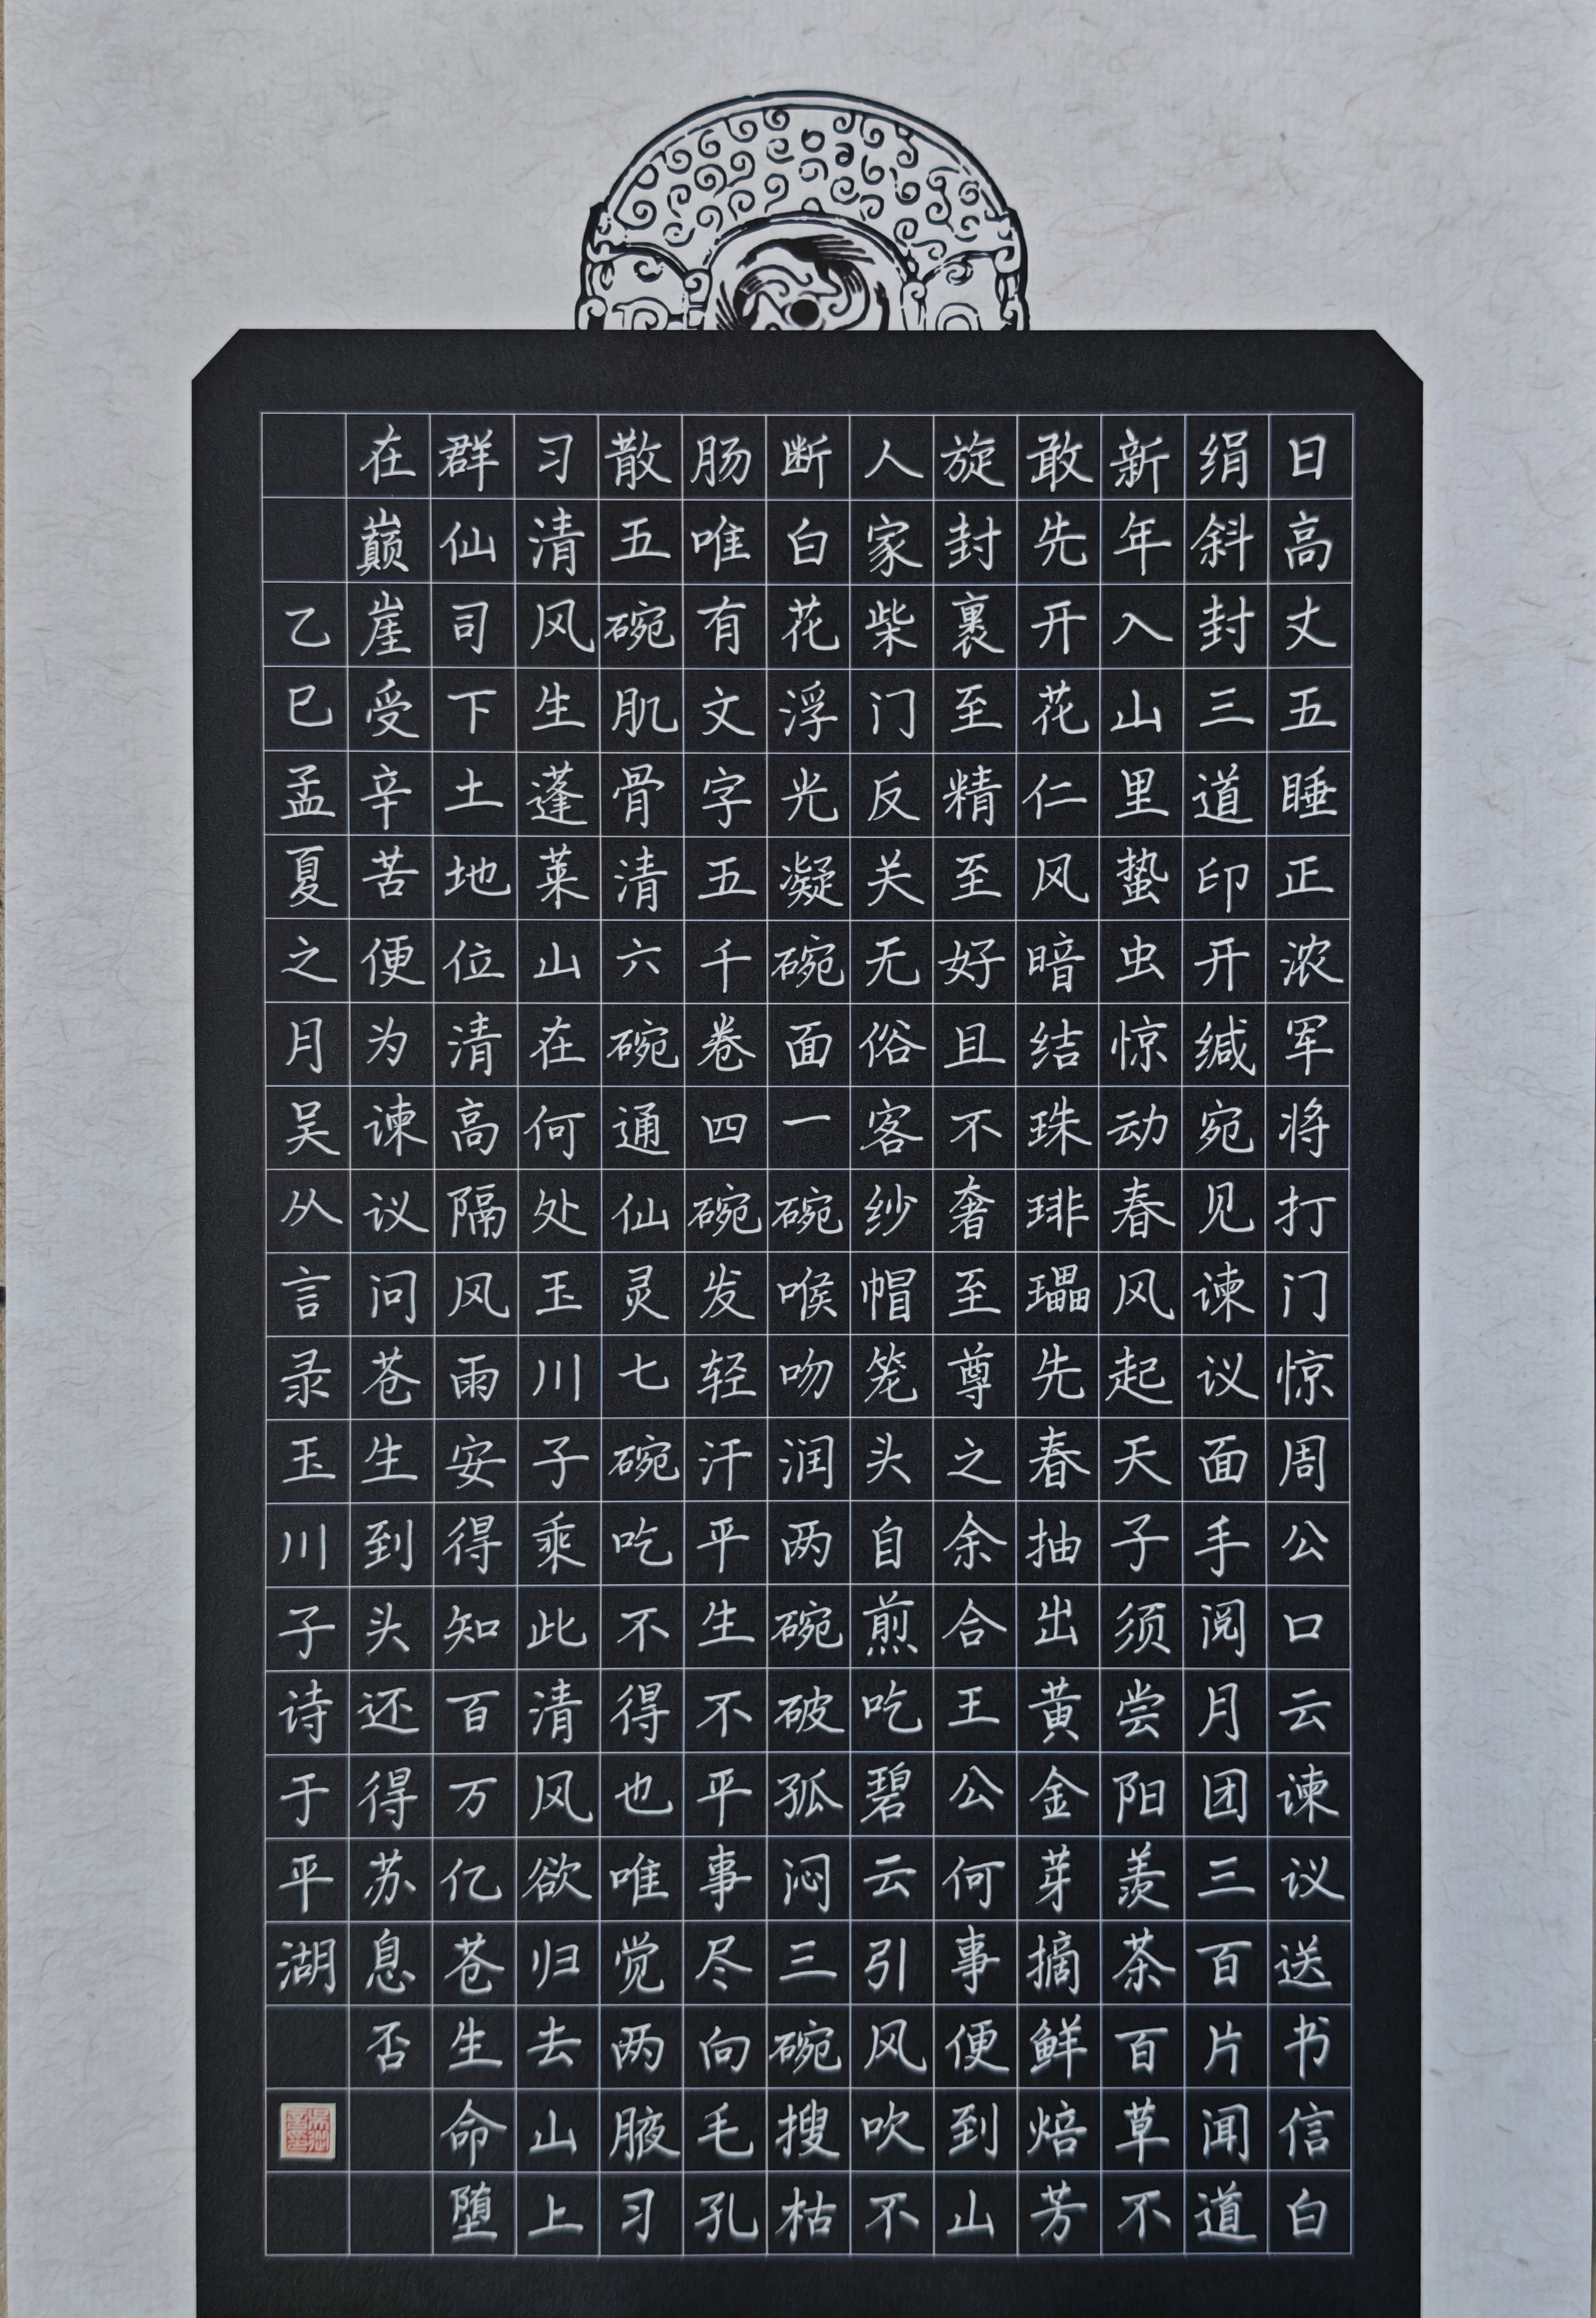 日高丈五睡正浓军将打门惊周公口云谏议送书信白
绢斜封三道印开缄宛见谏议面手阅月团三百片闻道
新年入山里蛰虫惊动春风起天子须尝阳羡茶百草不
敢先开花仁风暗结珠琲瓃先春抽出黄金芽摘鲜焙芳
旋封裹至精至好且不奢至尊之余合王公何事便到山
人家柴门反关无俗客纱帽笼头自煎吃碧云引风吹不
断白花浮光凝碗面一碗喉吻润两碗破孤闷三碗搜枯
肠唯有文字五千卷四碗发轻汗平生不平事尽向毛孔
散五碗肌骨清六碗通仙灵七碗吃不得也唯觉两腋习
习清风生蓬莱山在何处玉川子乘此清风欲归去山上
群仙司下土地位清高隔风雨安得知百万亿苍生命堕
在巅崖受辛苦便为谏议问苍生到头还得苏息否
乙巳孟夏之月吴从言录玉川子诗于平湖